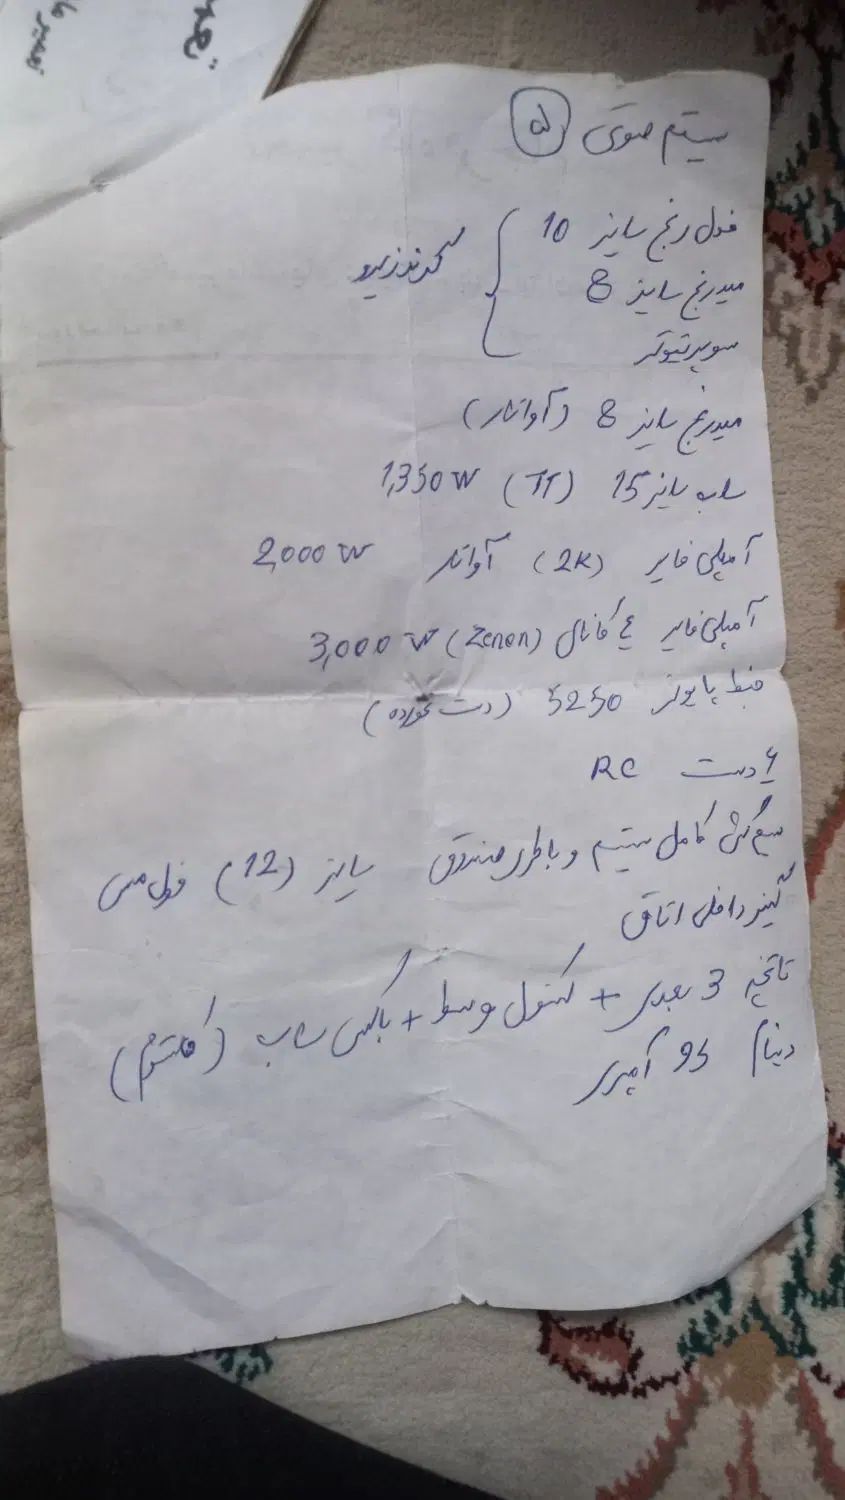 سیستم صوتی ۵
فول رنج سایز 10
میدرنج سایز 8
سوپر تیوتر
گرندزیرو
میدرنج سایز 8 (آواتار)
ساب سایز 15 (TT) 1,350 W
آمپلی فایر (2K) آواتار 2,000 W
آمپلی فایر ۴ کانال (Zenon) 3,000 W
ضبط پایونر 5250 (دست نخورده)
۶ دست RC
سیم کشی کامل سیستم و باطری صندوق سایز (12) فول مس
گینر داخل اتاق
تاقچه 3 بعدی + کنسول وسط + باکس ساب (کاستوم)
دینام 95 آمپری